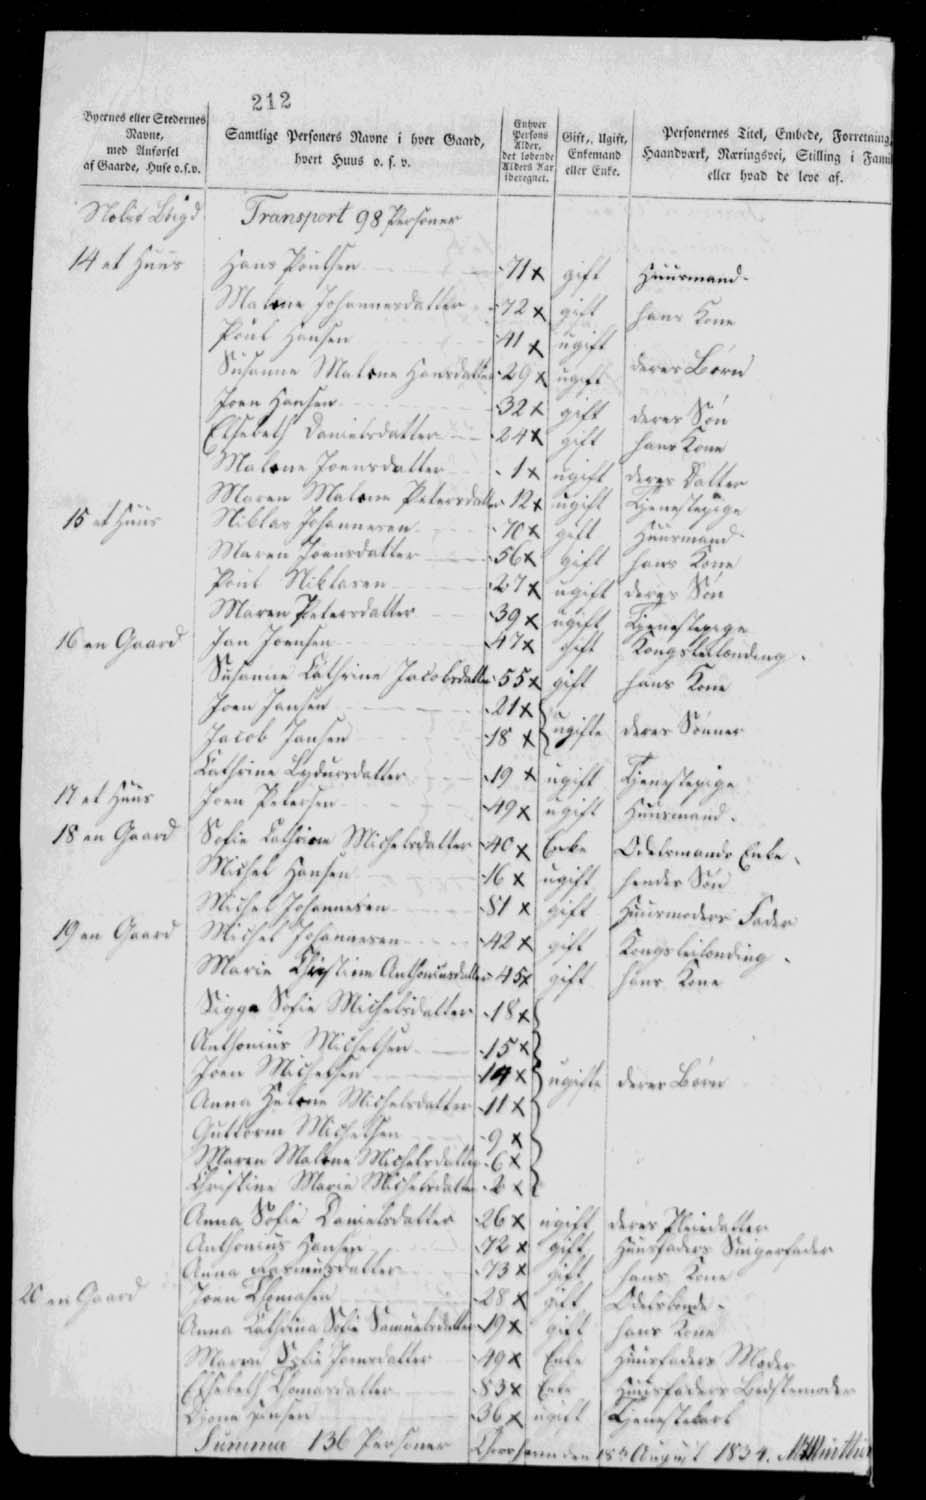 212
Byernes eller Stedernes Navne, med Anførsel af Gaarde, Huse o.s.v.
Samtlige Personers Navne i hver Gaard, hvert Huus o. s. v.
Enhver Persons Alder, det løbende Alders Aar iberegnet.
Gift, Ugift, Enkemand eller Enke.
Personernes Titel, Embede, Forretning, Haandværk, Næringsvei, Stilling i Famil eller hvad de leve af.
Bøigd Transport 98 Personer
14 et Huus Hans Poulsen 71 x gift Huusmand
Malene Johannesdatter 72 x gift hans Kone
Poul Hansen 41 x ugift
Susanne Malene Hansdatter 29 x ugift deres Børn
Joen Hansen 32 x gift deres Søn
Elsebeth Danielsdatter 24 x gift hans Kone
Malene Joensdatter 1 x ugift deres Datter
Maren Malene Petersdatter 12 x ugift Tjenestepige
15 et Huus Niklas Johannesen 70 x gift Huusmand
Maren Joensdatter 56 x gift hans Kone
Poul Niklasen 27 x ugift deres Søn
Maren Petersdatter 39 x ugift Tjenestepige
16 en Gaard Jan Joensen 47 x gift Kongsleilænding
Susanne Cathrine Jacobsdatter 55 x gift hans Kone
Joen Jansen 21 x
Jacob Jansen 18 x ugifte deres Sønner
Cathrine Lydursdatter 19 x ugift Tjenestepige
17 et Huus Joen Petersen 49 x ugift Huusmand
18 en Gaard Sofie Cathrine Michelsdatter 40 x Enke Odelsmands Enke
Michel Hansen 16 x ugift hendes Søn
Michel Johannesen 81 x gift Huusmoders Fader
19 en Gaard Michel Johannesen 42 x gift Kongsleilænding
Marie Christine Anthoniusdatter 45 x gift hans Kone
Sigga Sofie Michelsdatter 18 x
Anthonius Michelsen 15 x
Joen Michelsen 14 x ugifte deres Børn
Anna Helene Michelsdatter 11 x
Guttorm Michelsen 9 x
Maren Malene Michelsdatter 6 x
Christine Marie Michelsdatter 2 x
Anna Sofie Danielsdatter 26 x ugift deres Pleiedatter
Anthonius Hansen 72 x gift Huusfaders Svigerfader
Anna Rasmusdatter 73 x gift hans Kone
20 en Gaard Joen Thomasen 28 x gift Odelsbonde
Anna Cathrina Sofie Samuelsdatter 19 x gift hans Kone
Maren Sofie Joensdatter 49 x Enke Huusfaders Moder
Elsebeth Thomasdatter 83 x Enke Huusfaders Bedstemoder
Djone Hansen 36 x ugift Tjenestekarl
Summa 136 Personer Thorshavn den 18 August 1834.